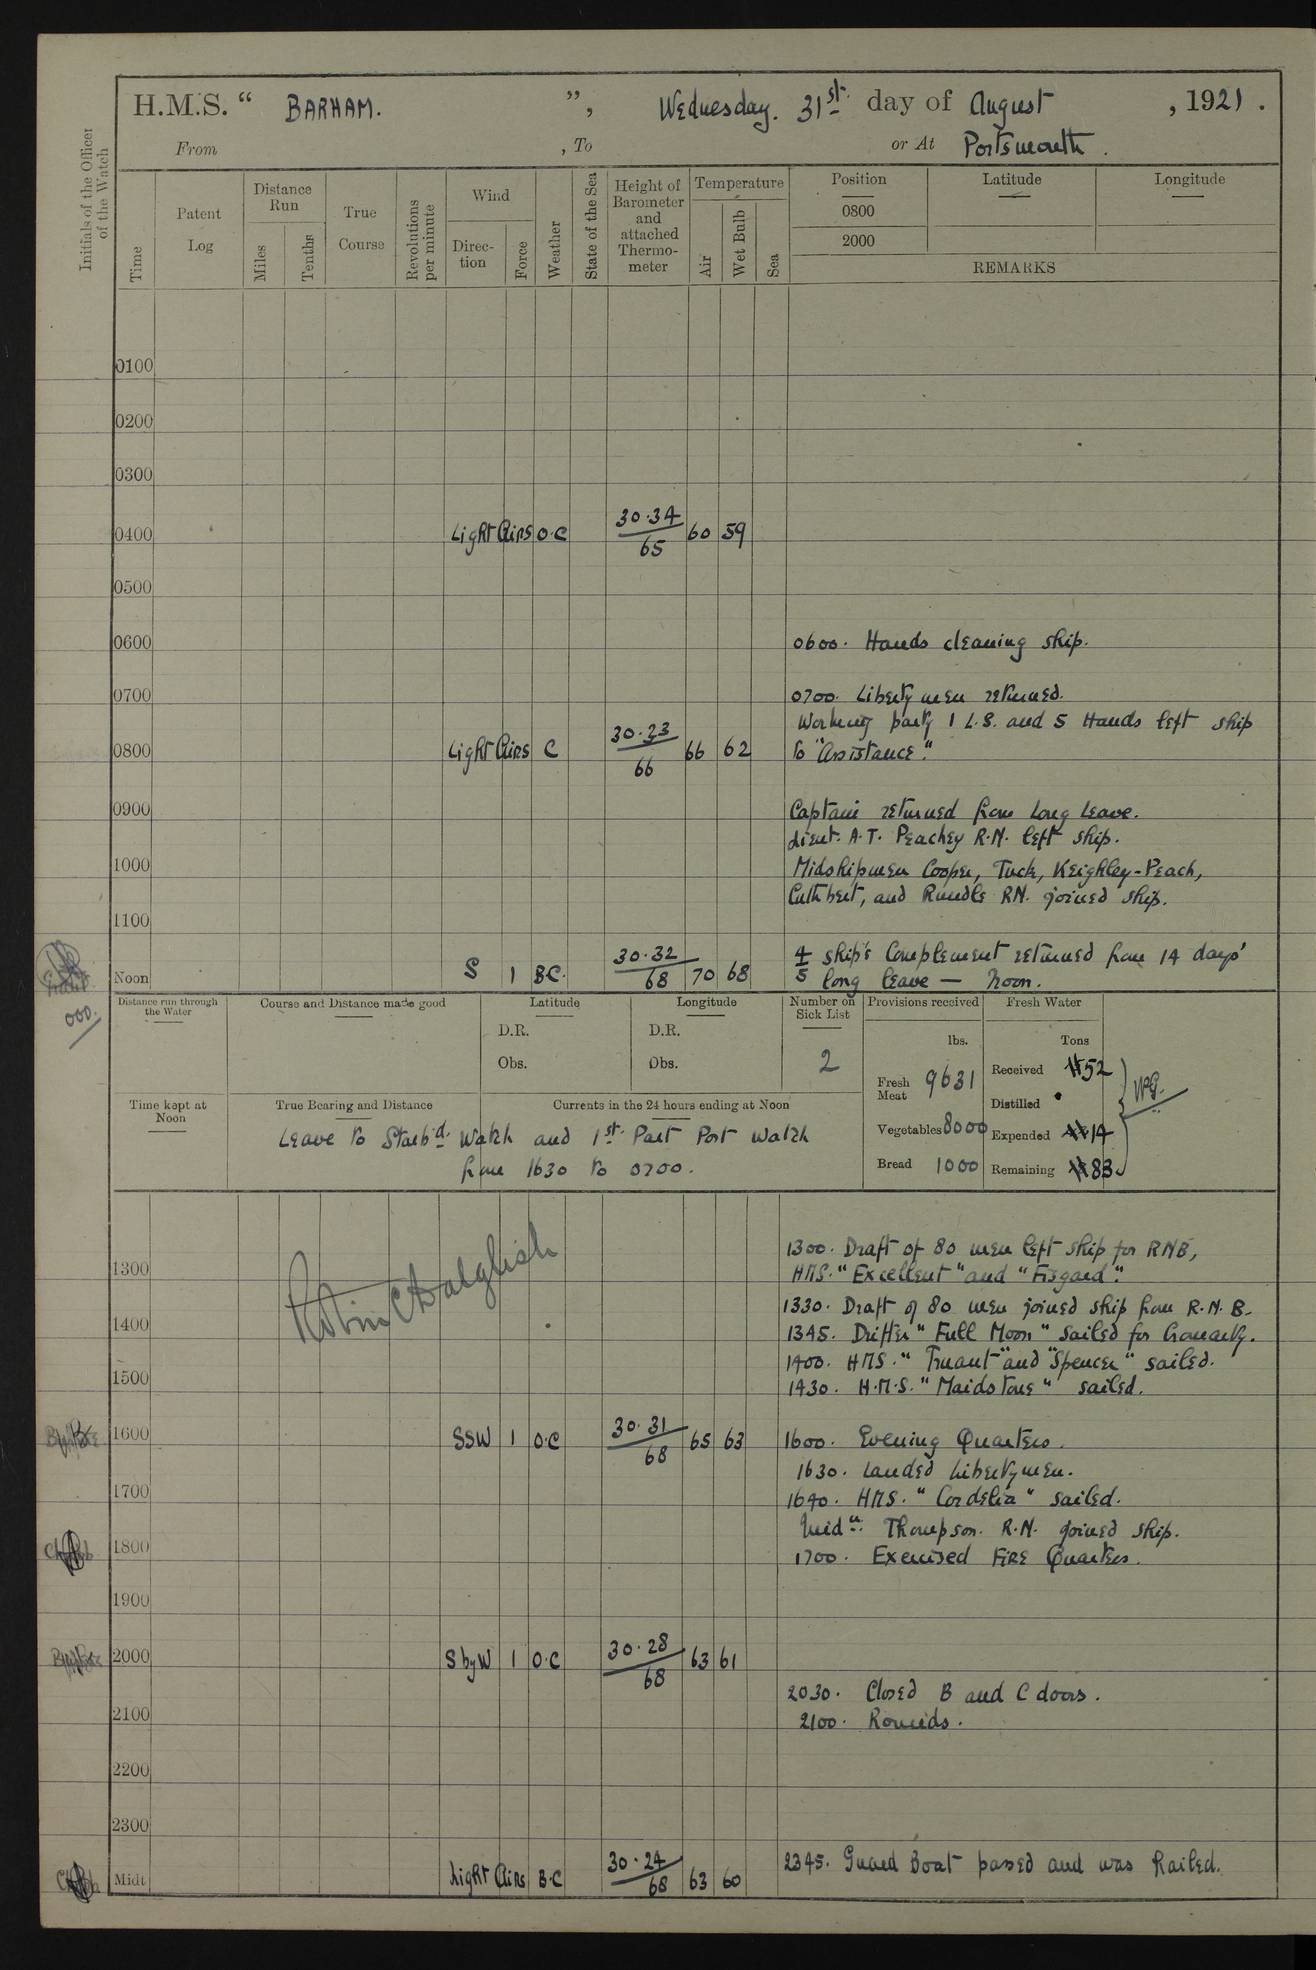 H.M.S. “ BARHAM. ”, Wednesday. 31st. day of August , 1921 .
From , To or At Portsmouth .
Initials of the Officer of the Watch
Time
Patent Log
Distance Run
Miles
Tenths
True Course
Revolutions per minute
Wind
Direc-tion
Force
Weather
State of the Sea
Height of Barometer and attached Thermo-meter
Temperature
Air
Wet Bulb
Sea
Position Latitude Longitude
0800
2000
REMARKS
0100
0200
0300
0400 Light Airs O.C 30.34/65 60 59
0500
0600 0600. Hands cleaning ship.
0700 0700. Libertymen returned.
Working party 1 L.S. and 5 Hands left ship
0800 Light Airs C 30.33/66 66 62 to "Assistance".
0900 Captain returned from Long Leave.
Lieut. A.T. Peachey R.N. left ship.
1000 Midshipmen Cooper, Tuck, Keighley-Peach,
Cuthbert, and Rundle RN. joined ship.
1100
4/5 ship's Complement returned from 14 days'
Noon S 1 B.C. 30.32/68 70 68 long leave — Noon.
000.
Distance run through the Water
Course and Distance made good
Latitude
D.R.
Obs.
Longitude
D.R.
Obs.
Number on Sick List
2
Provisions received
lbs.
Fresh Meat 9631
Vegetables 8000
Bread 1000
Fresh Water
Tons
Received 52
Distilled
Expended 14
Remaining 83
Time kept at Noon
True Bearing and Distance
Currents in the 24 hours ending at Noon
Leave to Starbd. Watch and 1st. Part Port Watch
from 1630 to 0700.
1300. Draft of 80 men left ship for RNB,
1300 HMS. "Excellent" and "Fisgard".
1330. Draft of 80 men joined ship from R.N.B.
1400 1345. Drifter "Full Moon" sailed for Cromarty.
1400. HMS. "Truant" and "Spencer" sailed.
1500 1430. H.M.S. "Maidstone" sailed.
1600 SSW 1 O.C 30.31/68 65 63 1600. Evening Quarters.
1630. Landed Libertymen.
1700 1640. HMS. "Cordelia" sailed.
Midn. Thompson. R.N. joined ship.
1800 1700. Exercised Fire Quarters.
1900
2000 S by W 1 O.C 30.28/68 63 61
2030. Closed B and C doors.
2100 2100. Rounds.
2200
2300
Midt Light Airs B.C 30.24/68 63 60 2345. Guard Boat passed and was hailed.
Robin C Dalglish